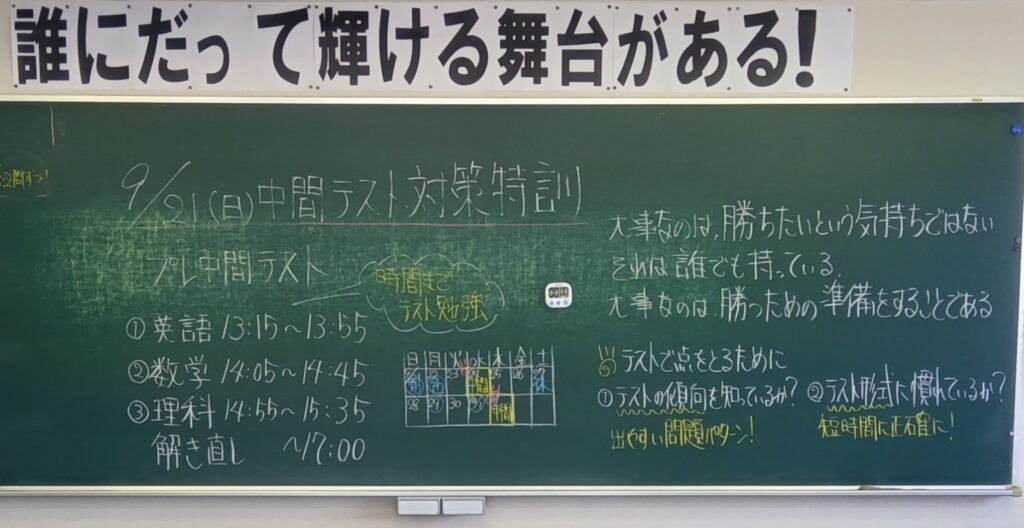 誰にだって輝ける舞台がある!
9/21(日)中間テスト対策特訓
プレ中間テスト
時間まで
テスト勉強
①英語 13:15~13:55
②数学 14:05~14:45
③理科 14:55~15:35
解き直し ~17:00
日 月 火 水 木 金 土
23 25 26 27
中間 休
28 29 30
中間
大事なのは、勝ちたいという気持ちではない
それは誰でも持っている。
大事なのは、勝つための準備をすることである
テストで点をとるために
①テストの傾向を知っているか?
出やすい問題パターン!
②テスト形式に慣れているか?
短時間に正確に!